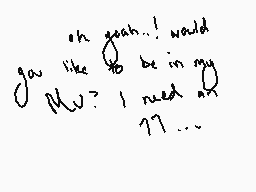 oh yeah..! would
you like to be in my
MV? I need an
11...